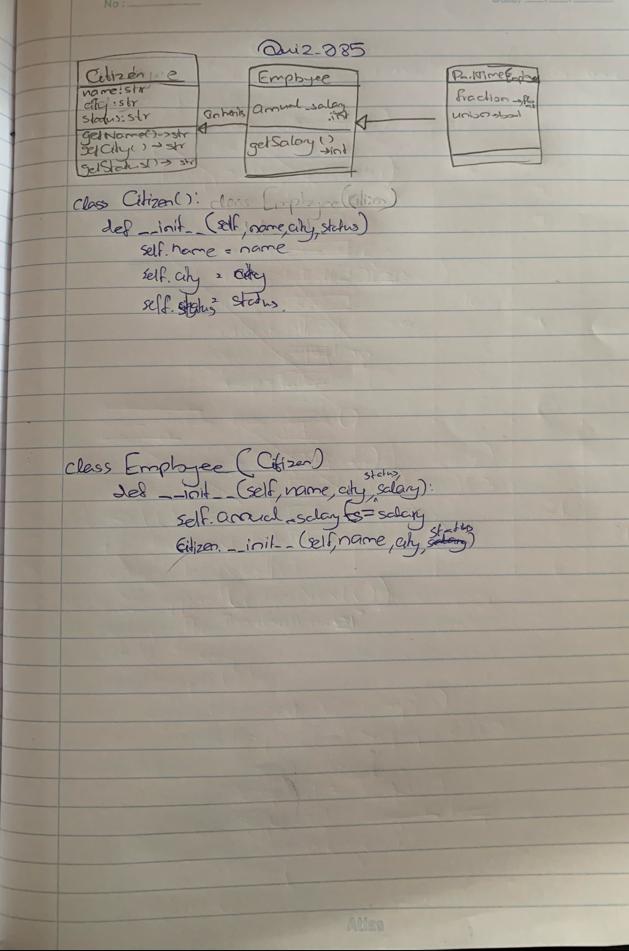 No:
Quiz-085
Citizen e
name:str
city:str
status:str
getName()->str
getCity()->str
getStatus()->str
inherits
Employee
annual_salary
:int
getSalary()
->int
PartTimeEmployee
fraction
union->bool
class Citizen(): class Employee(Citizen)
def __init__(self,name,city,status)
self.name = name
self.city = city
self.status = status.
class Employee (Citizen)
status,
def __init__(self,name,city,salary):
self.annual_salary = salary
status
Citizen.__init__(self,name,city,salary)
Atlas